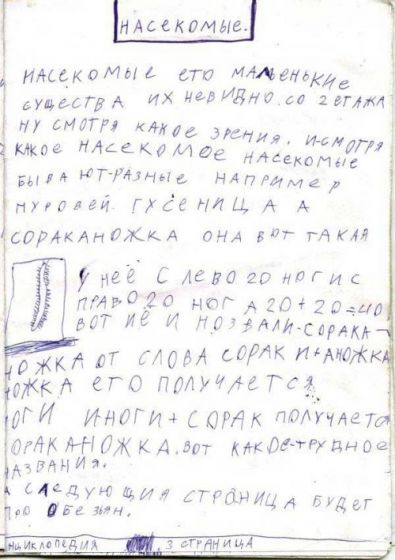 НАСЕКОМЫЕ.
НАСЕКОМЫЕ ЕТО МАЛЕНЬКИЕ
СУЩЕСТВА ИХ НЕВИДНО СО 2 ЕТАЖА
НУ СМОТРЯ КАКОЕ ЗРЕНИЯ. И СМОТРЯ
КАКОЕ НАСЕКОМОЕ НАСЕКОМЫЕ
БЫВАЮТ-РАЗНЫЕ НАПРИМЕР
МУРОВЕЙ. ГУСЕНИЦА А
СОРАКАНОЖКА ОНА ВОТ ТАКАЯ
У НЕЁ СЛЕВО 20 НОГ И С
ПРАВО 20 НОГ А 20+20=40
ВОТ ИЁ И НОЗВАЛИ-СОРАКА-
НОЖКА ОТ СЛОВА СОРАК И+АНОЖКА
НОЖКА ЕТО ПОЛУЧАЕТСЯ
НОГИ ИНОГИ+СОРАК ПОЛУЧАЕТСЯ
СОРАКАНОЖКА. ВОТ КАКОЕ-ТРУДНОЕ
НАЗВАНИЯ.
А СЛЕДУЮЩИЯ СТРОНИЦА БУДЕТ
ПРО ОБЕЗЬЯН.
ЭНЦИКЛОПЕДИЯ 3 СТРАНИЦА